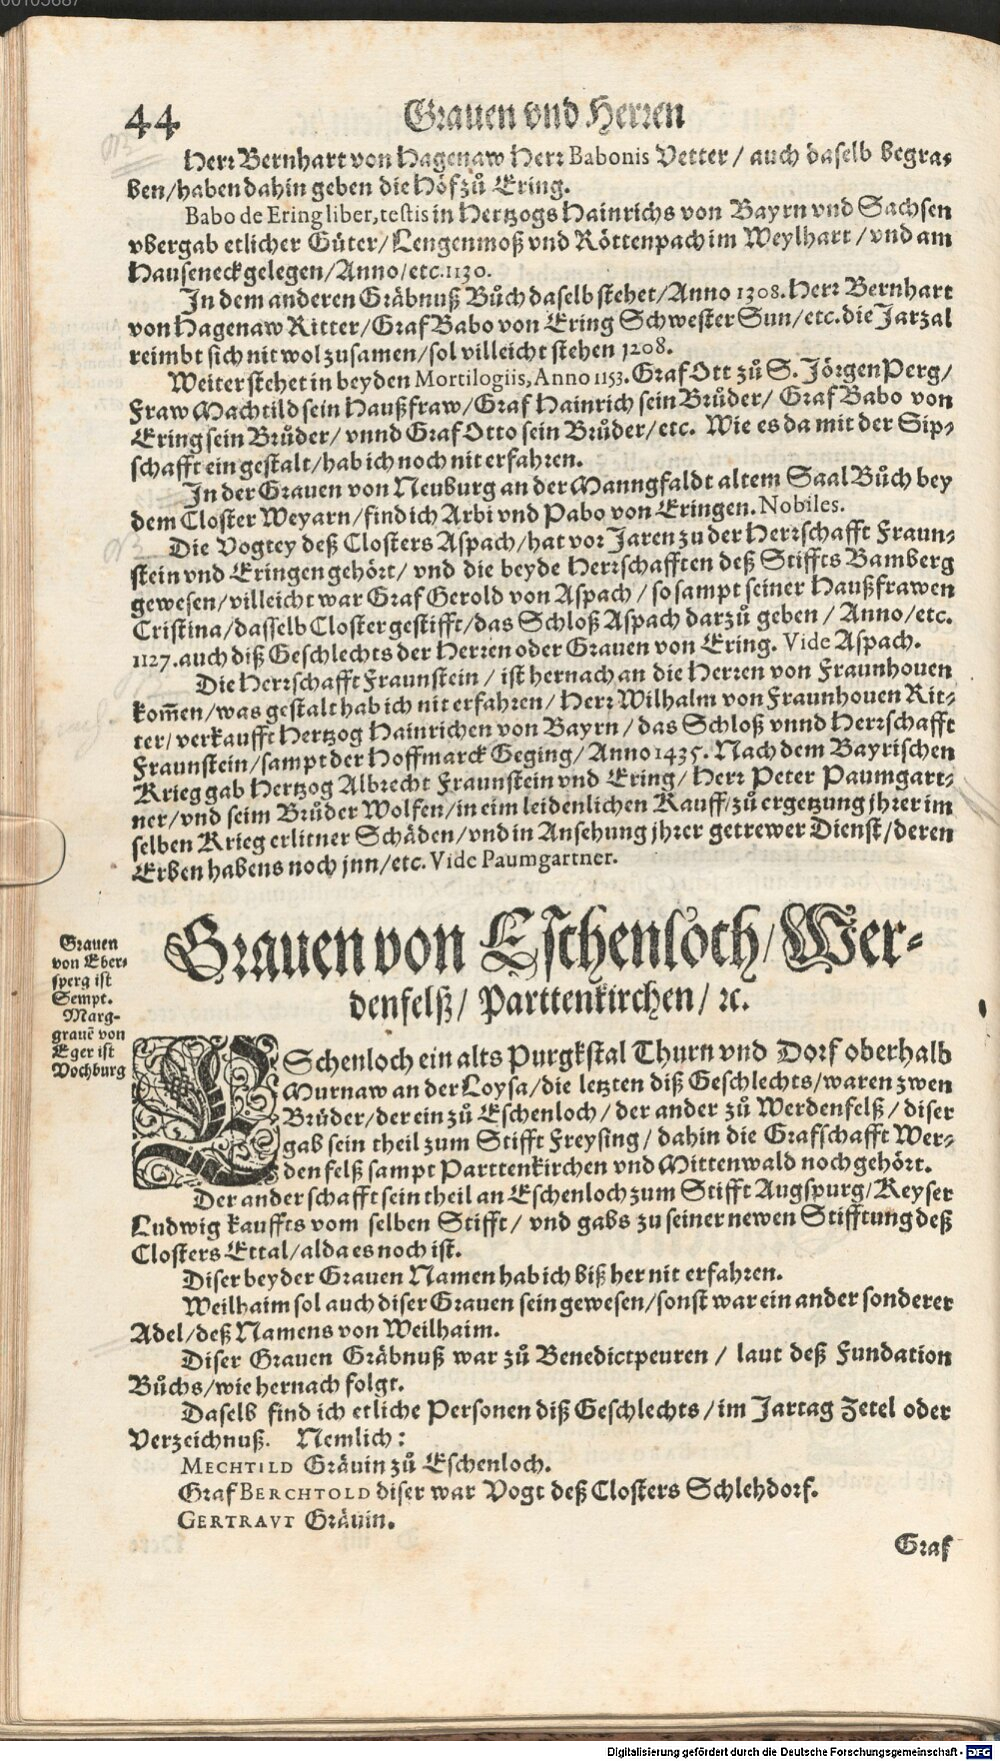 00103687
44 Grauen vnd Herren
Herr Bernhart von Hagenaw Herr Babonis Vetter / auch daselb begra-
ben/haben dahin geben die Höf zů Ering.
Babo de Ering liber, testis in Hertzogs Hainrichs von Bayrn vnd Sachsen
vbergab etlicher Güter/Lengenmoß vnd Röttenpach im Weylhart /vnd am
Hauseneck gelegen/Anno/etc.1130.
In dem anderen Gräbnuß Bůch daselb stehet/Anno 1308. Herr Bernhart
von Hagenaw Ritter/Graf Babo von Ering Schwester Sun/etc.die Jarzal
reimbt sich nit wol zusamen/sol villeicht stehen 1208.
Weiter stehet in beyden Mortilogiis, Anno 1153. Graf Ott zů S. Jörgen Perg/
Fraw Machtild sein Haußfraw/Graf Hainrich sein Brůder/ Graf Babo von
Ering sein Brůder/ vnnd Graf Otto sein Brůder/etc. Wie es da mit der Sip-
schafft ein gestalt/hab ich noch nit erfahren.
In der Grauen von Neuburg an der Manngfaldt altem Saal Bůch bey
dem Closter Weyarn/find ich Arbi vnd Pabo von Eringen. Nobiles.
Die Vogtey deß Closters Aspach/hat vor Jaren zu der Herrschafft Fraun-
stein vnd Eringen gehört/ vnd die beyde Herrschafften deß Stiffts Bamberg
gewesen/villeicht war Graf Gerold von Aspach / so sampt seiner Haußfrawen
Cristina/dasselb Closter gestifft/das Schloß Aspach darzů geben / Anno/etc.
1127. auch diß Geschlechts der Herren oder Grauen von Ering. Vide Aspach.
Die Herrschafft Fraunstein / ist hernach an die Herren von Fraunhouen
kom̃en/was gestalt hab ich nit erfahren/ Herr Wilhalm von Fraunhouen Rit-
ter/ verkaufft Hertzog Hainrichen von Bayrn / das Schloß vnnd Herrschafft
Fraunstein/sampt der Hoffmarck Geging/ Anno 1435. Nach dem Bayrischen
Krieg gab Hertzog Albrecht Fraunstein vnd Ering/ Herr Peter Paumgart-
ner/vnd seim Brůder Wolfen/in eim leidenlichen Kauff/zů ergetzung jhrer im
selben Krieg erlitner Schäden/vnd in Ansehung jhrer getrewer Dienst/deren
Erben habens noch jnn/etc. Vide Paumgartner.
Grauen von Eschenloch/Wer-
denfelß/ Parttenkirchen/ ꝛc.
Grauen
von Eber-
sperg ist
Sempt.
Marg-
grauẽ von
Eger ist
Vochburg
ESchenloch ein alts Purgkstal Thurn vnd Dorf oberhalb
Murnaw an der Loysa/die letzten diß Geschlechts/waren zwen
Brüder/der ein zů Eschenloch/ der ander zů Werdenfelß / diser
gab sein theil zum Stifft Freysing/ dahin die Grafschafft Wer-
denfelß sampt Parttenkirchen vnd Mittenwald noch gehört.
Der ander schafft sein theil an Eschenloch zum Stifft Augspurg/Keyser
Ludwig kauffts vom selben Stifft/ vnd gabs zu seiner newen Stifftung deß
Closters Ettal/alda es noch ist.
Diser beyder Grauen Namen hab ich biß her nit erfahren.
Weilhaim sol auch diser Grauen sein gewesen/sonst war ein ander sonderer
Adel/deß Namens von Weilhaim.
Diser Grauen Gräbnuß war zů Benedictpeuren / laut deß Fundation
Bůchs/wie hernach folgt.
Daselb find ich etliche Personen diß Geschlechts /im Jartag Zetel oder
Verzeichnuß. Nemlich:
MECHTILD Gräuin zů Eschenloch.
Graf BERCHTOLD diser war Vogt deß Closters Schlehdorf.
GERTRAVT Gräuin.
Graf
Digitalisierung gefördert durch die Deutsche Forschungsgemeinschaft - DFG